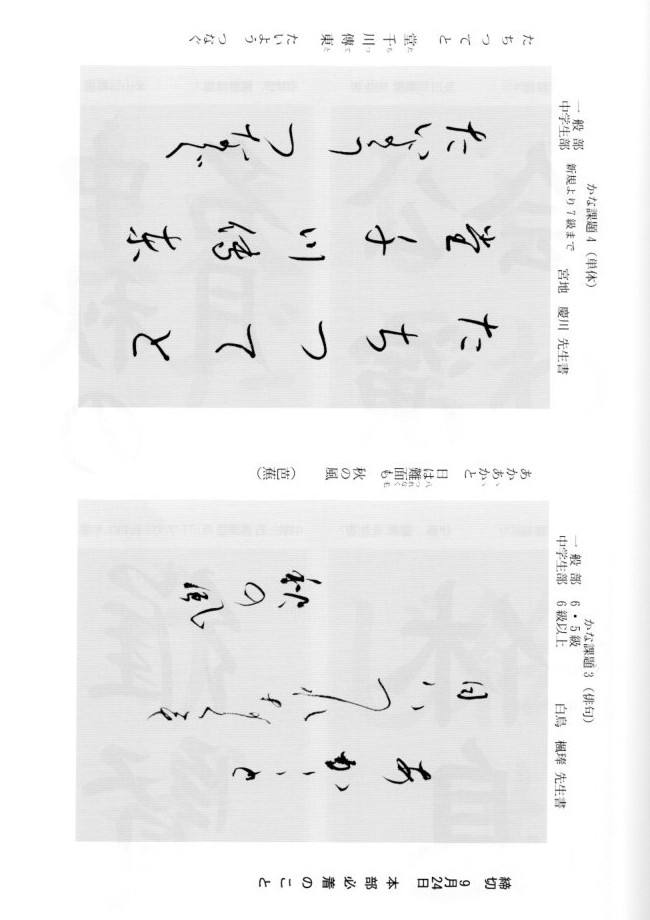 かな課題4（単体）
一般部
中学生部 新規より7級まで 宮地 慶川 先生書
たちつてと
堂千川傳東
たいよう つなぐ
たちつてと
堂千川傳東
たいよう
つなぐ
かな課題3（俳句）
一般部 6・5級
中学生部 6級以上 白鳥 楓琫 先生書
あかあかと
日は難面も
秋の風 （芭蕉）
秋の
風
締切 9月24日 本部必着のこと